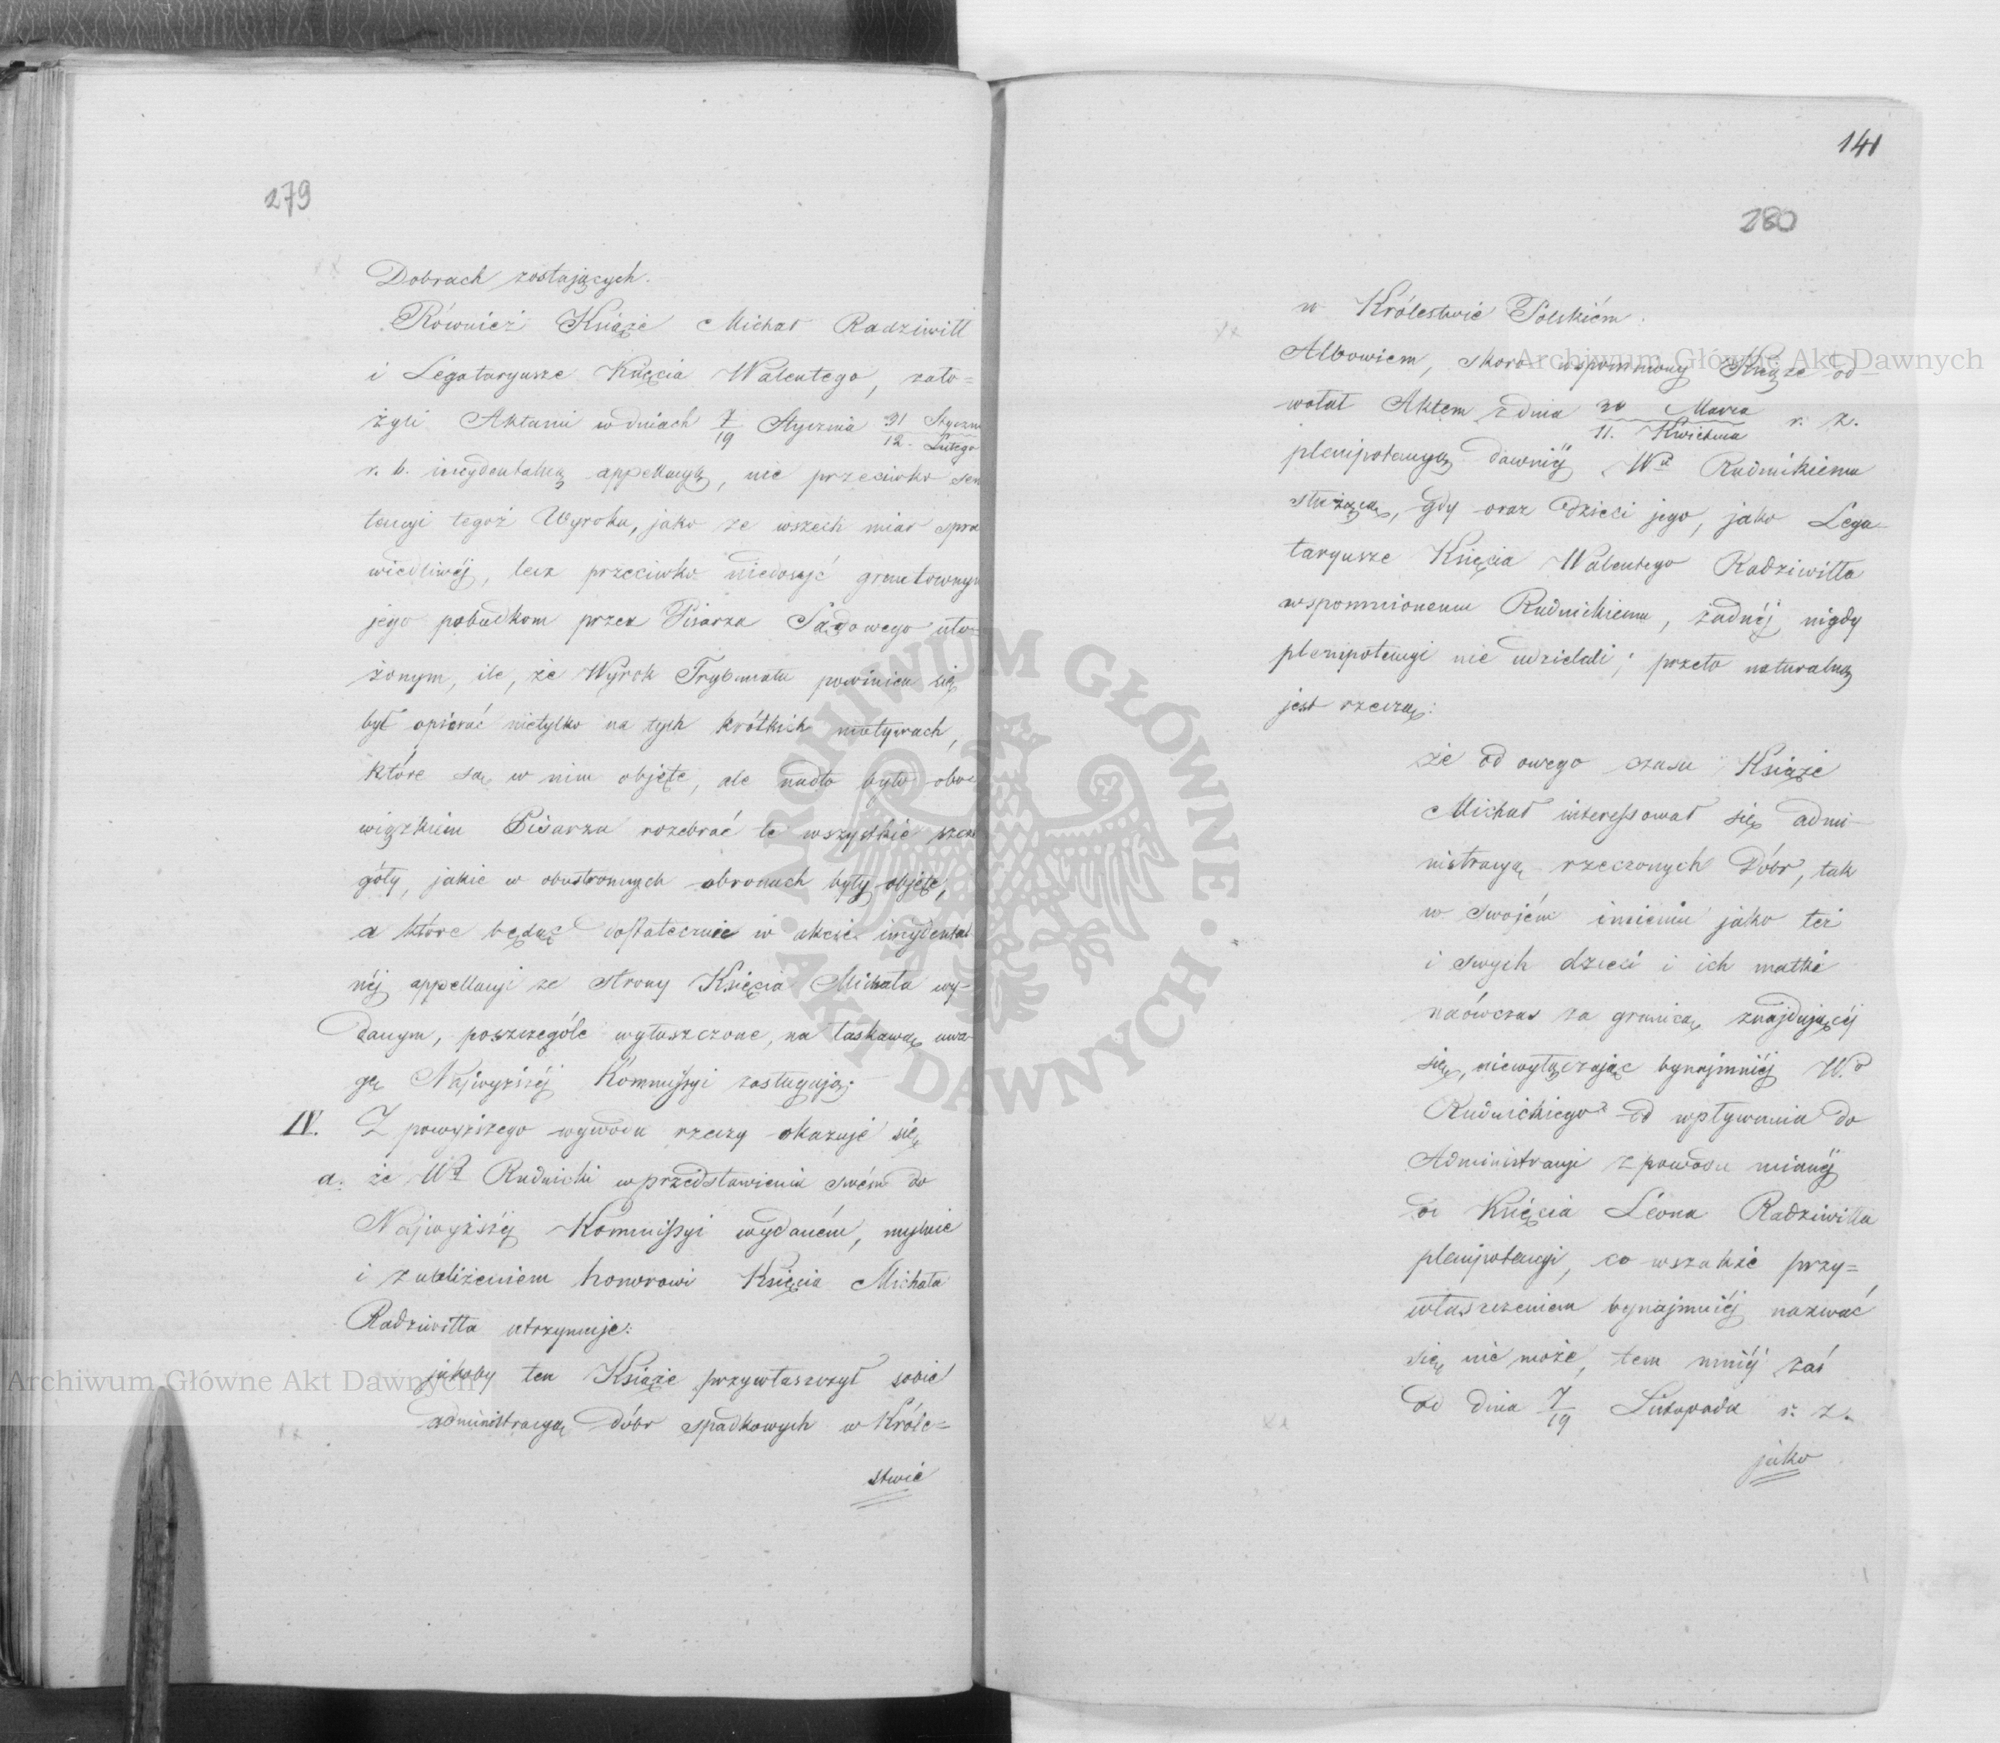 279
Dobrach zostających.
Również Książe Michał Radziwiłł
i Legataryusze Xięcia Walentego, zało=
żyli Aktami w dniach 7/19 Stycznia 31 Styczn
12. Lutego
r. b. incydentalną appellacyą, nie przeciwko sen
tencyi tegoż Wyroku, jako ze wszech miar spra
wiedliwéj, lecz przeciwko niedosyć gruntownym
jego pobudkom przez Pisarza Sądowego uło-
żonym, ile, że Wyrok Trybunału powinien się
był opiérać nietylko na tych krótkich motywach,
które są w nim objęte, ale nadto było obo
wiązkiem Pisarza rozebrać te wszystkie szcze
góły, jakie w obustronnych obronach były objęte,
a które będąc dostatecznie w akcie incydental
néj appellacyi ze strony Księcia Michała wy-
danym, poszczególe wyłuszczone, na łaskawą uwa-
gę Najwyższéj Kommissyi zasługują.
IV. Z powyższego wywodu rzeczy okazuje się
a. że Wy Rudnicki w przedstawieniu swém do
Najwyższéj Kommissyi wydaném, mylnie
i z ubliżeniem honorowi Księcia Michała
Radziwiłła utrzymuje:
jakoby ten Książe przywłaszczył sobie
administracyą dóbr spadkowych w Króle=
stwie
141
280
w Królestwie Polskiém.
Albowiem, skoro wspomniony Książe od-
wołał Aktem z dnia 30 Marca r. z.
11. Kwietnia
plenipotencyą dawniéj Wu Rudnikiemu
służącą, gdy oraz Dzieci jego, jako Lega-
taryusze Księcia Walentego Radziwiłła
wspomnionemu Rudnickiemu, żadnéj nigdy
plenipotencyi nie udzielali; przeto naturalną
jest rzeczą:
że od owego czasu Książe
Michał interessował się admi-
nistracyą rzeczonych Dóbr, tak
w swojém imieniu jako też
i swych dzieci i ich matki
naówczas za granicą znajdującéj
się, niewyłączając bynajmniéj W.o
Rudnickiego od wpływania do
Administracyi z powodu mianéj
od Xięcia Léona Radziwiłła
plenipotencyi, co wszakże przy=
właszczeniem bynajmniéj nazwać
się nie może, tem mniéj zaś
od dnia 7/19 Listopada r. z.
jako
Archiwum Główne Akt Dawnych
Archiwum Główne Akt Dawnych
· ARCHIWUM GŁÓWNE · AKT DAWNYCH